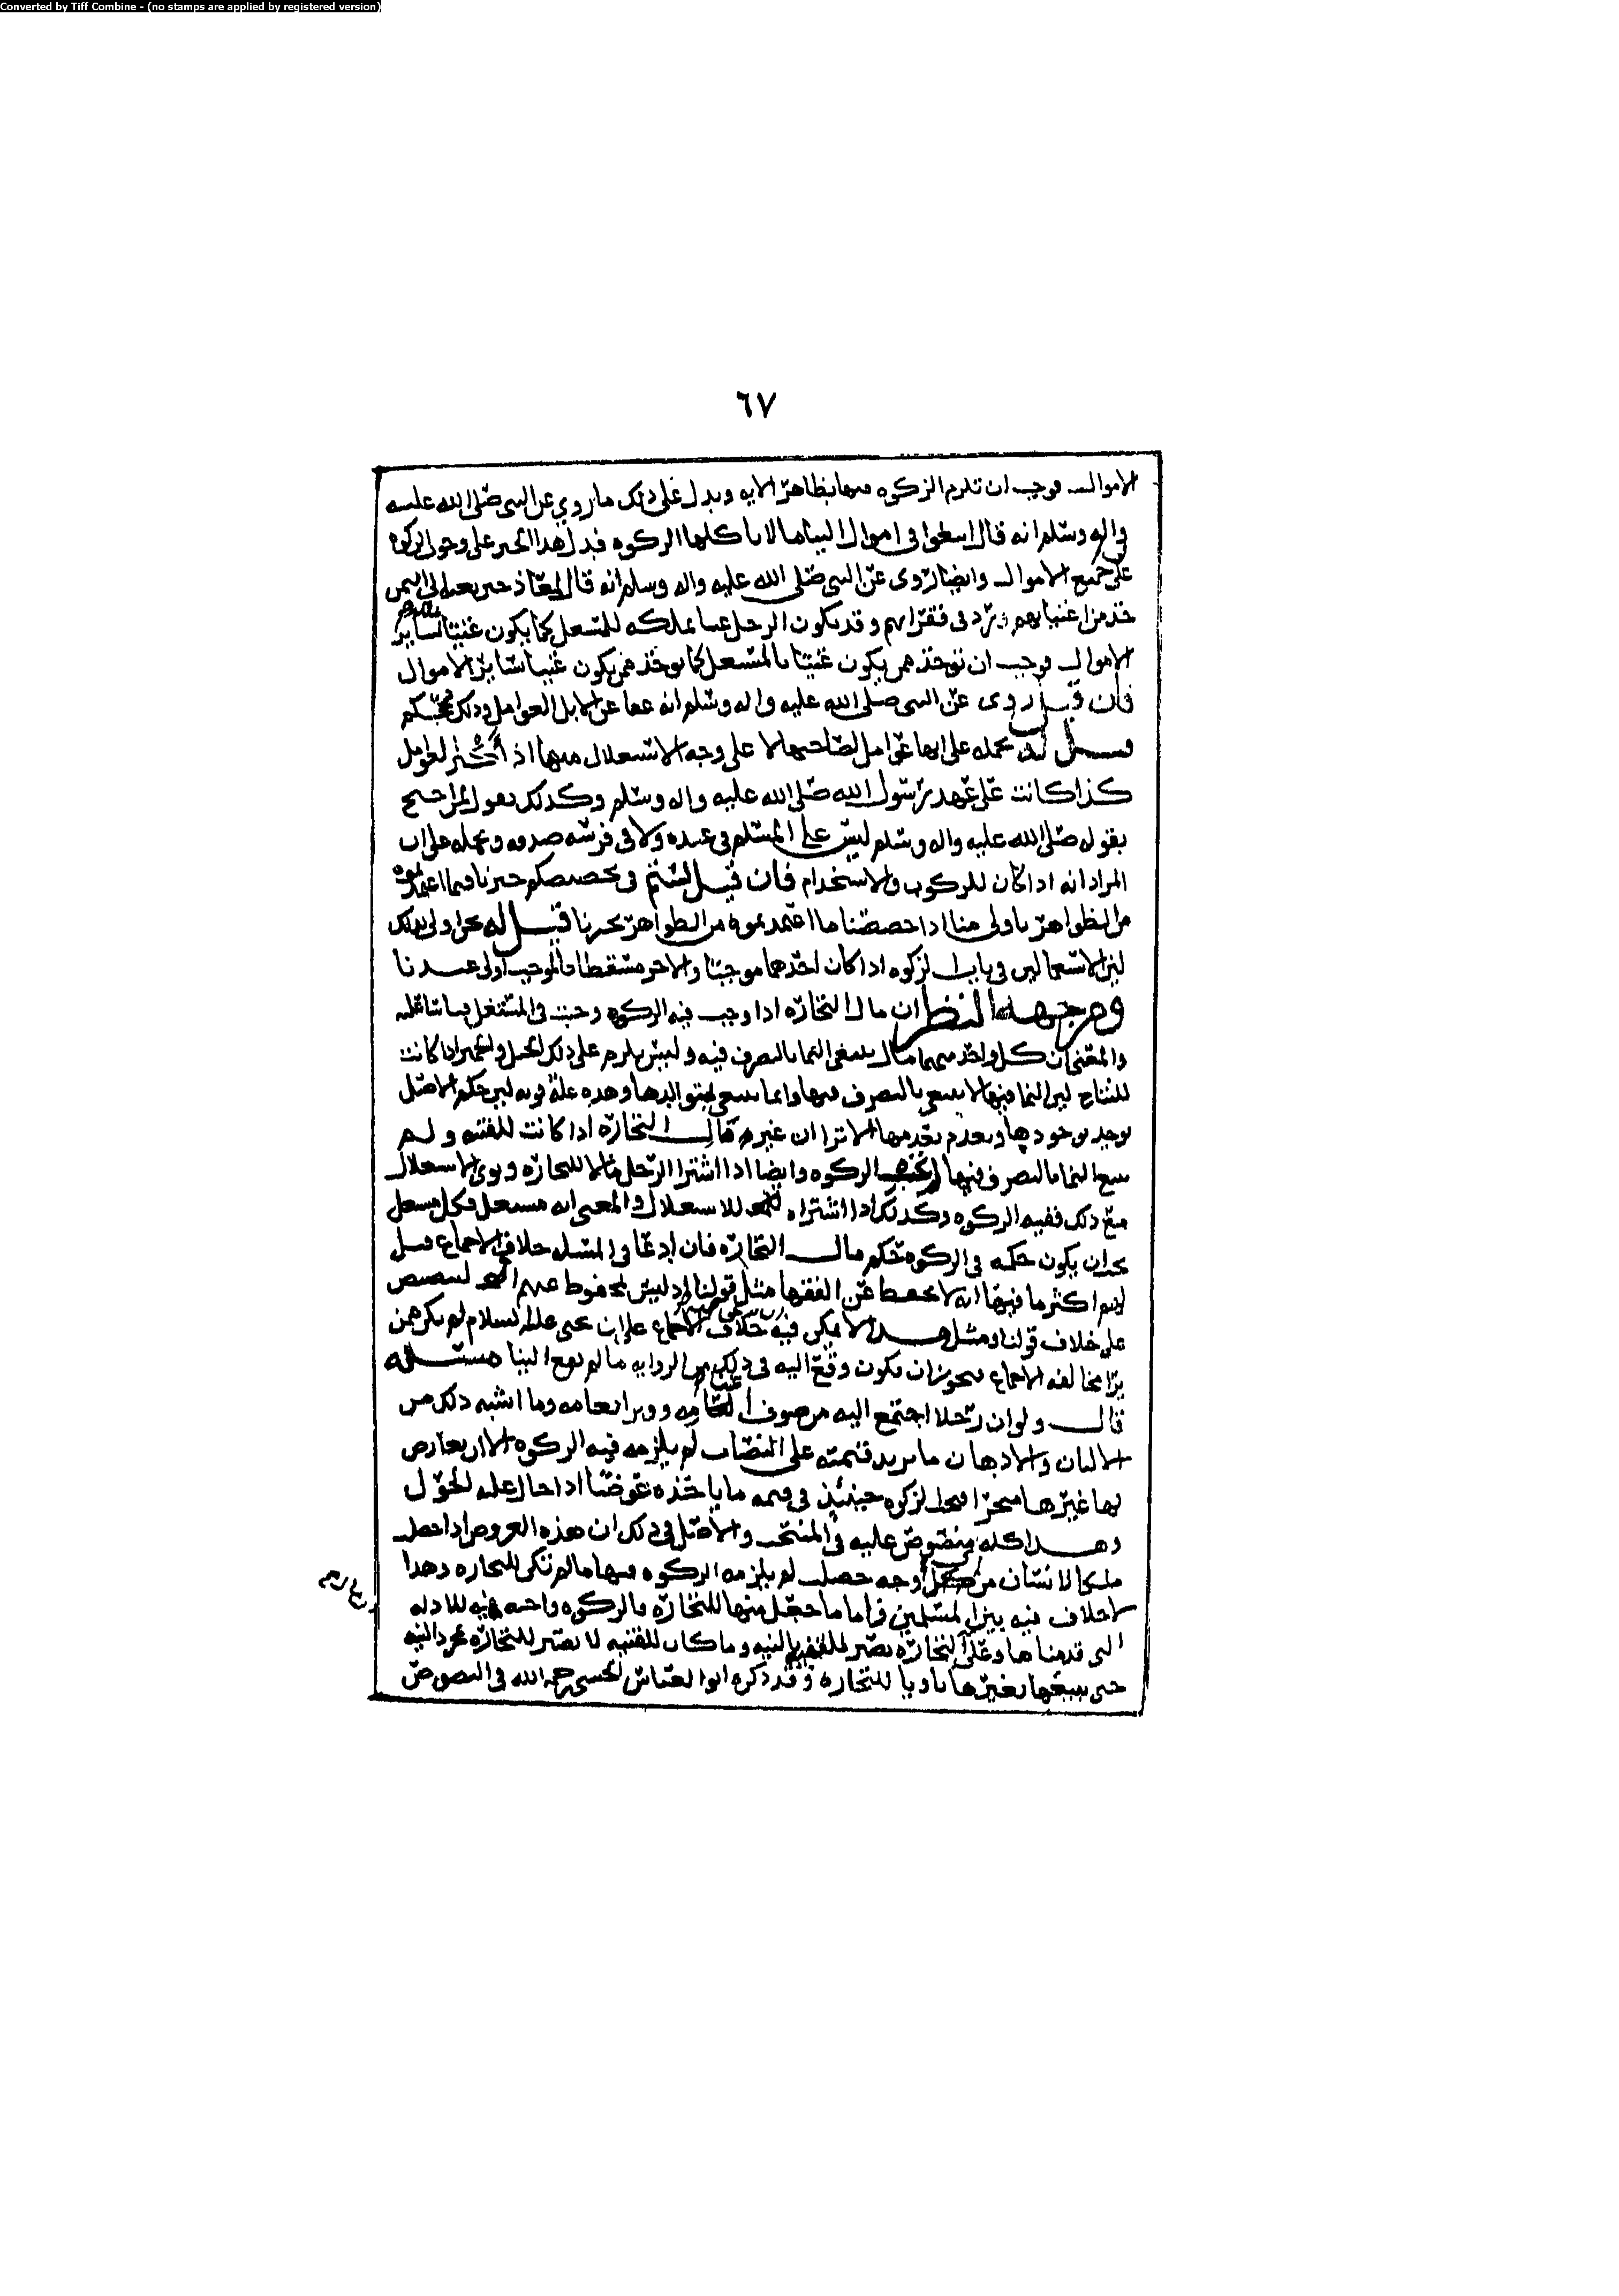 Converted by Tiff Combine - (no stamps are applied by registered version)
٦٧
الاموال فوجب ان تلزم الزكوه فيها بظاهر الايه ويدل على ذلك ما روي عن النبي صلى الله عليه
واله وسلم انه قال ابتغوا في اموال اليتاما لا تاكلها الزكوه فدل هذا الخبر على وجوب الزكوه
على جميع الاموال وايضا روى عن النبي صلى الله عليه واله وسلم انه قال لمعاذ حين بعثه الى اليمن
خذ من اغنيائهم ورد في فقرائهم وقد يكون الرجل غنيا بملكه للمستغل كما يكون غنيا بسائر
الاموال فوجب ان تؤخذ ممن يكون غنيا بالمستغل كما تؤخذ ممن يكون غنيا بسائر الاموال
فان قيل روى عن النبي صلى الله عليه واله وسلم انه عفا عن الابل العوامل وذلك يحجكم
قيل له نحمله على انها عوامل لصاحبها لا على وجه الاستغلال منها اذ اكثر العوامل
كذا كانت على عهد رسول الله صلى الله عليه واله وسلم وكذلك نقول لمن احتج
بقوله صلى الله عليه واله وسلم ليس على المسلم في عبده ولا في فرسه صدقه ونحمله على ان
المراد انه اذا كان للركوب والاستخدام فان قيل لستم في تخصيصكم خبرنا بما اعتمدتموه
من الظواهر باولى منا اذا خصصنا ما اعتمدتموه من الظواهر بخبرنا قيل له نحن اولى بذلك
لان الاستعمالين في باب الزكوه اذا كان احدهما موجبا والاخر مسقطا فالموجب اولى عندنا
ومن جهه النظر ان مال التجاره اذا وجب فيه الزكوه وجبت في المستغل قياسا عليه
والمعنى ان كل واحد منهما مال يبتغى النما بالتصرف فيه وليس يلزم على ذلك الخيل والحمير اذا كانت
للنتاج لان النما فيها لا يبتغى بالتصرف فيها وانما يبتغى بتوالدها وهذه علة قويه لان حكم الاصل
يوجد بوجودها ويعدم بعدمها الا ترا ان غير مال التجاره اذا كانت للقنيه ولم
يبتغ النما بالتصرف فيها لم تجب الزكوه وايضا اذا اشترا الرجل مالا للتجاره ونوى الاستغلال
مع ذلك ففيه الزكوه وكذلك اذا اشتراه للاستغلال والمعنى انه مستغل فكل مستغل
يجب ان يكون حكمه في الزكوه حكم مال التجاره فان ادعا في المسله خلاف الاجماع قيل
لهم اكثر ما فيها انه لا يحفظ عن الفقها مثل قولنا اذ ليس بمحفوظ عنهم التنصيص
على خلاف قولنا ومثل هذا لا يمكن فيه خلاف الاجماع على ان يحيى عليه السلام لم يكن ممن
يرا مخالفه الاجماع فيجوز ان يكون وقع اليه في ذلك من الروايه ما لم يقع الينا مسئله
قال ولو ان رجلا اجتمع اليه من صوف اغنامه ووبر انعامه وما اشبه ذلك من
الالبان والادهان ما يزيد قيمته على النصاب لم يلزمه فيه الزكوه الا ان يعارض
بها غيرها متجرا فتجب الزكوه حينئذ في قيمه ما ياخذه عوضا اذا حال عليه الحول
وهذا كله منصوص عليه في المنتخب والاصل في ذلك ان هذه العروض اذا حصلت
ملكا لانسان من اي وجه حصلت لم يلزمه الزكوه فيها ما لم تكن للتجاره وهذا
لا خلاف فيه بين المسلمين فاما ما جعل منها للتجاره فالزكوه واجبه فيه للادله
التي قدمناها وعلى ان التجاره تصير للقنيه بالنيه وما كان للقنيه لا تصير للتجاره بمجرد النيه
حتى يبيعها بغيرها ناويا للتجاره وقد ذكره ابو العباس الحسني رحمه الله في النصوص